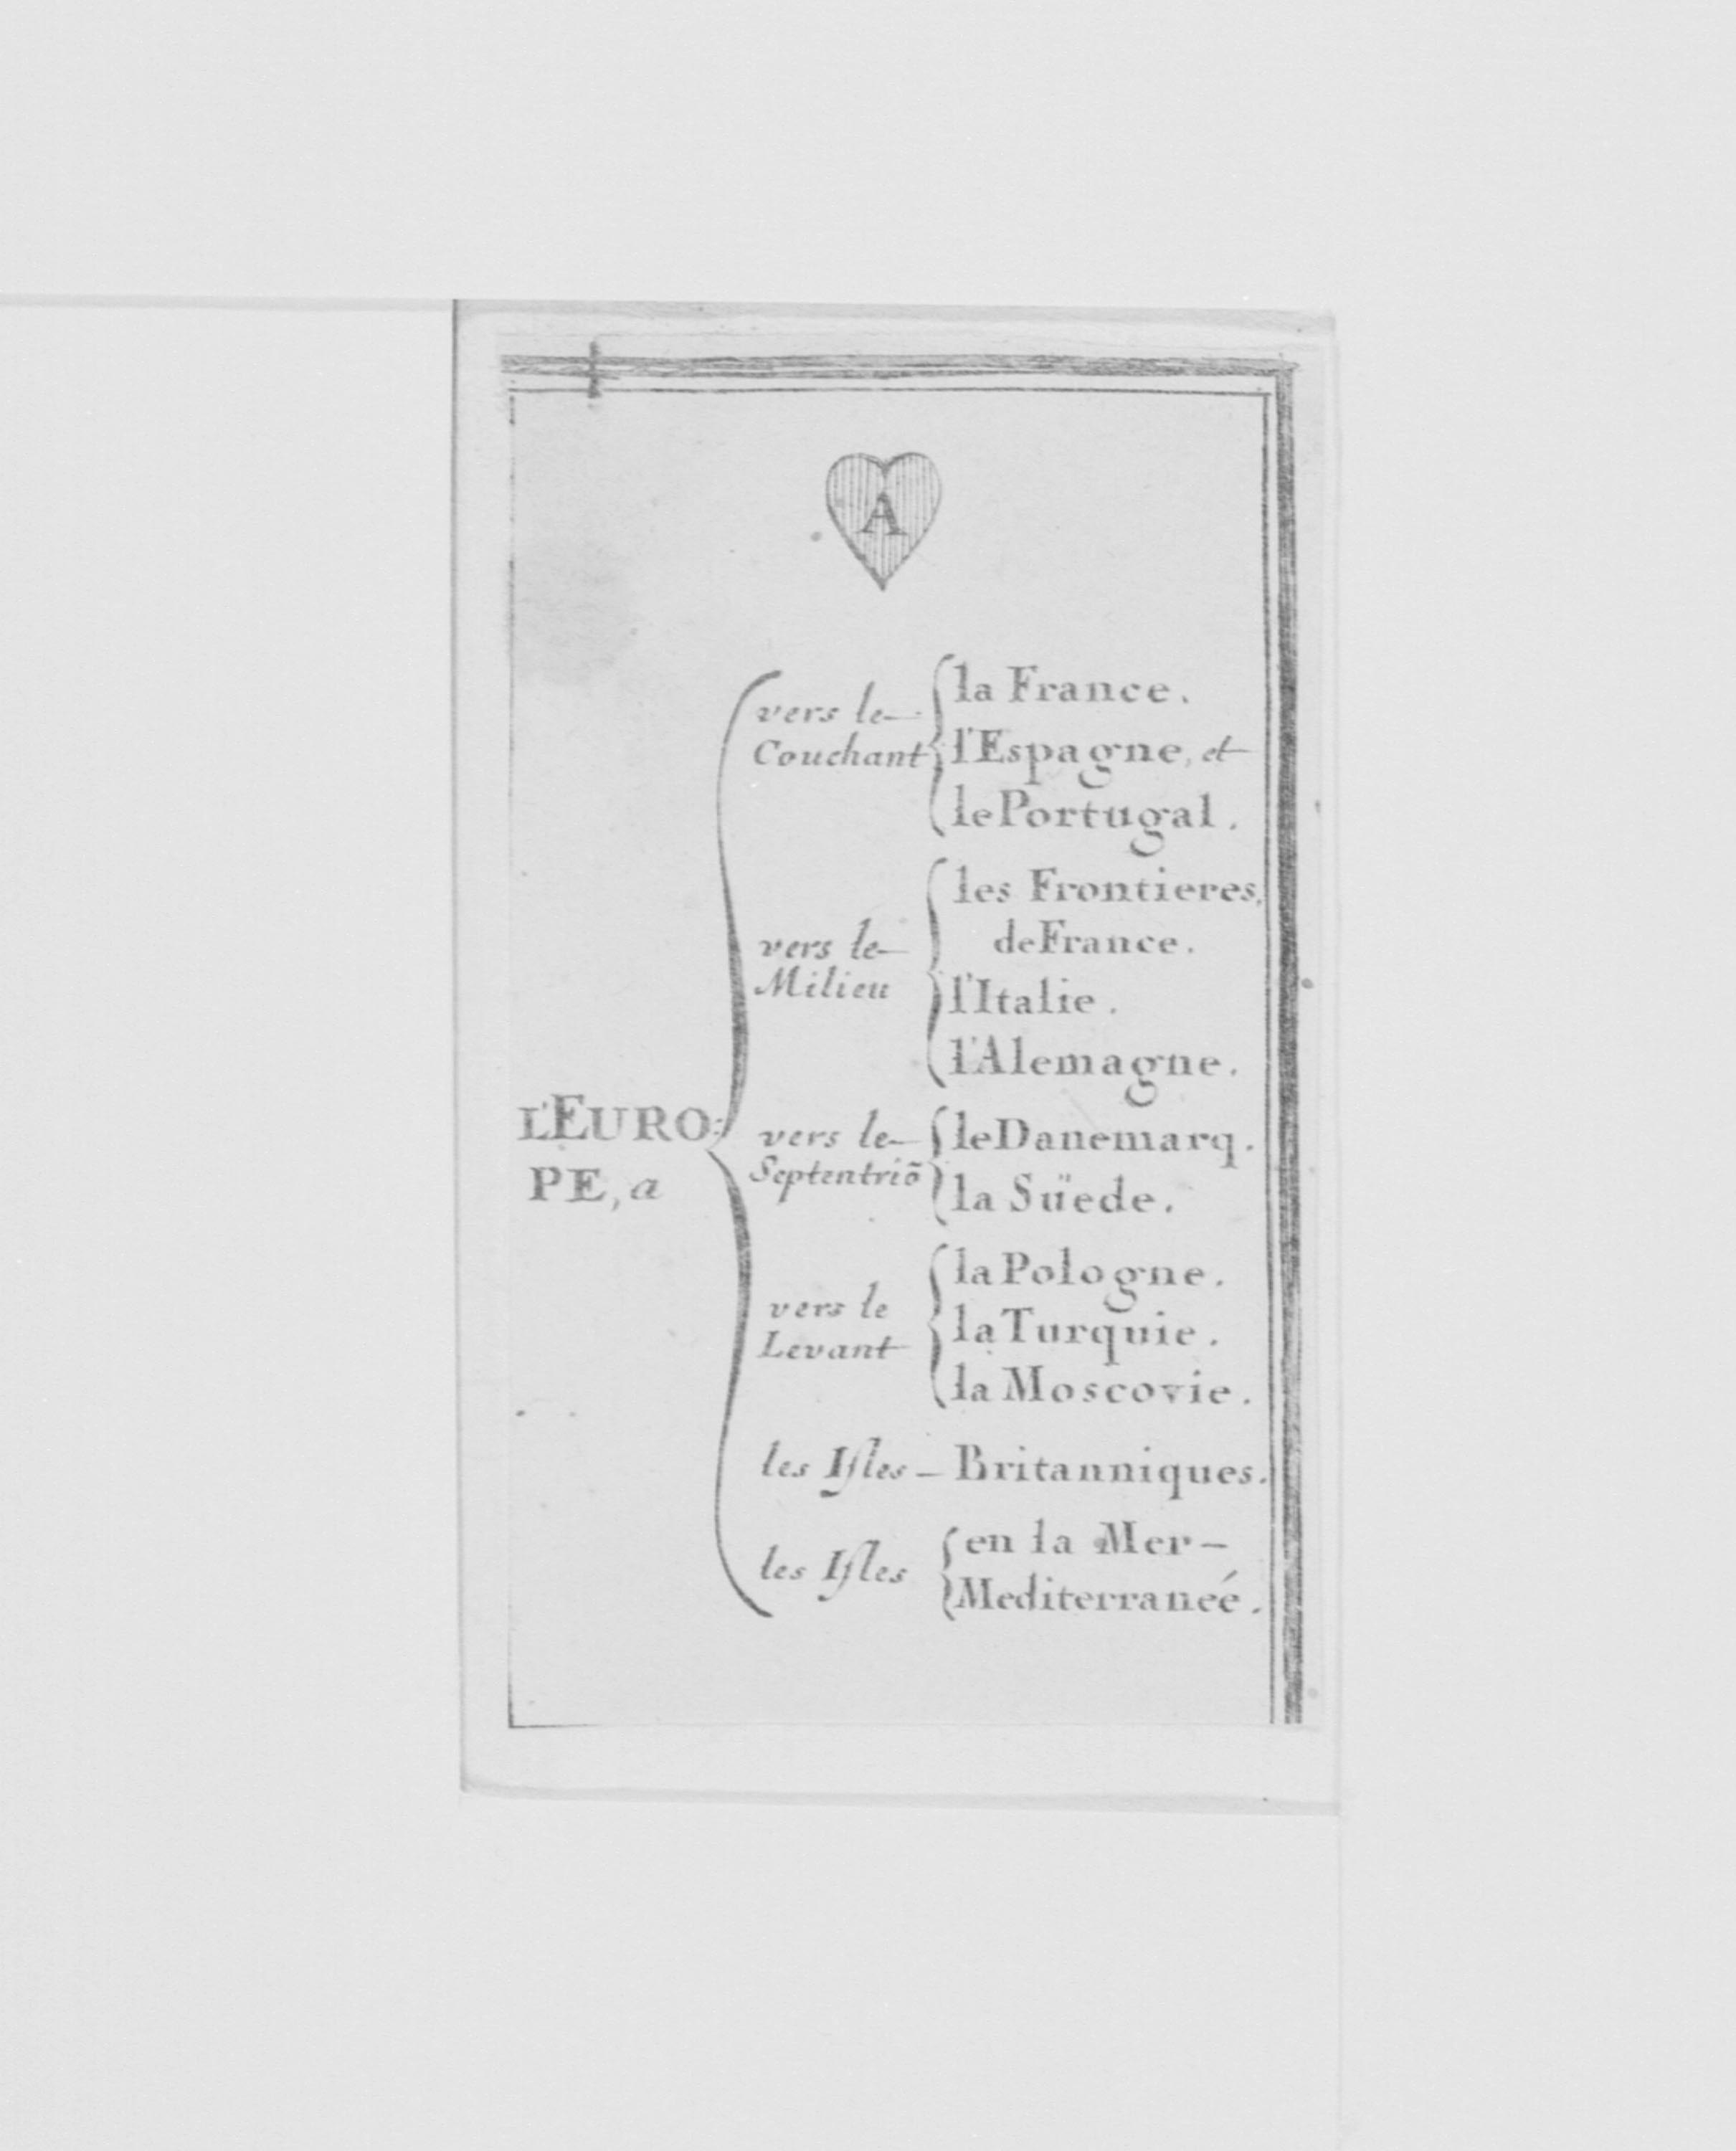 A
L'EURO:
PE, a
vers le
Couchant
la France.
l'Espagne, et
le Portugal.
vers le
Milieu
les Frontieres,
de France.
l'Italie.
l'Alemagne.
vers le
Septentriõ
le Danemarq.
la Süede.
vers le
Levant
la Pologne.
la Turquie.
la Moscovie.
les Iſles – Britanniques.
les Iſles
en la Mer –
Mediterraneé.